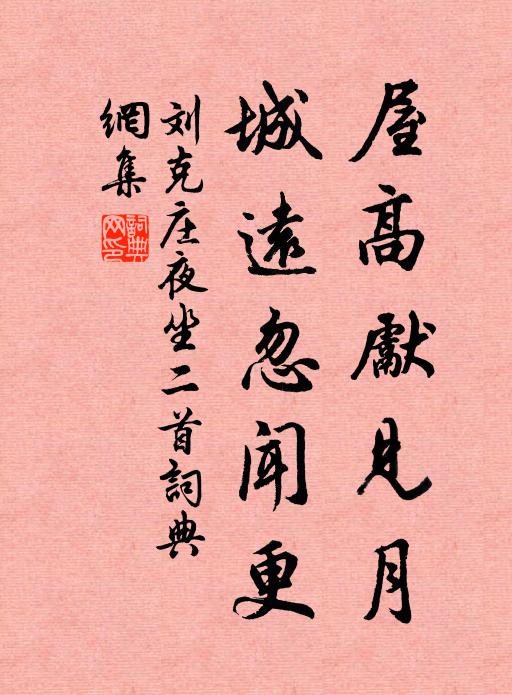 屋高獻見月
城遠忽聞更
刘克庄夜坐二首詞典
網集
詞典
网印